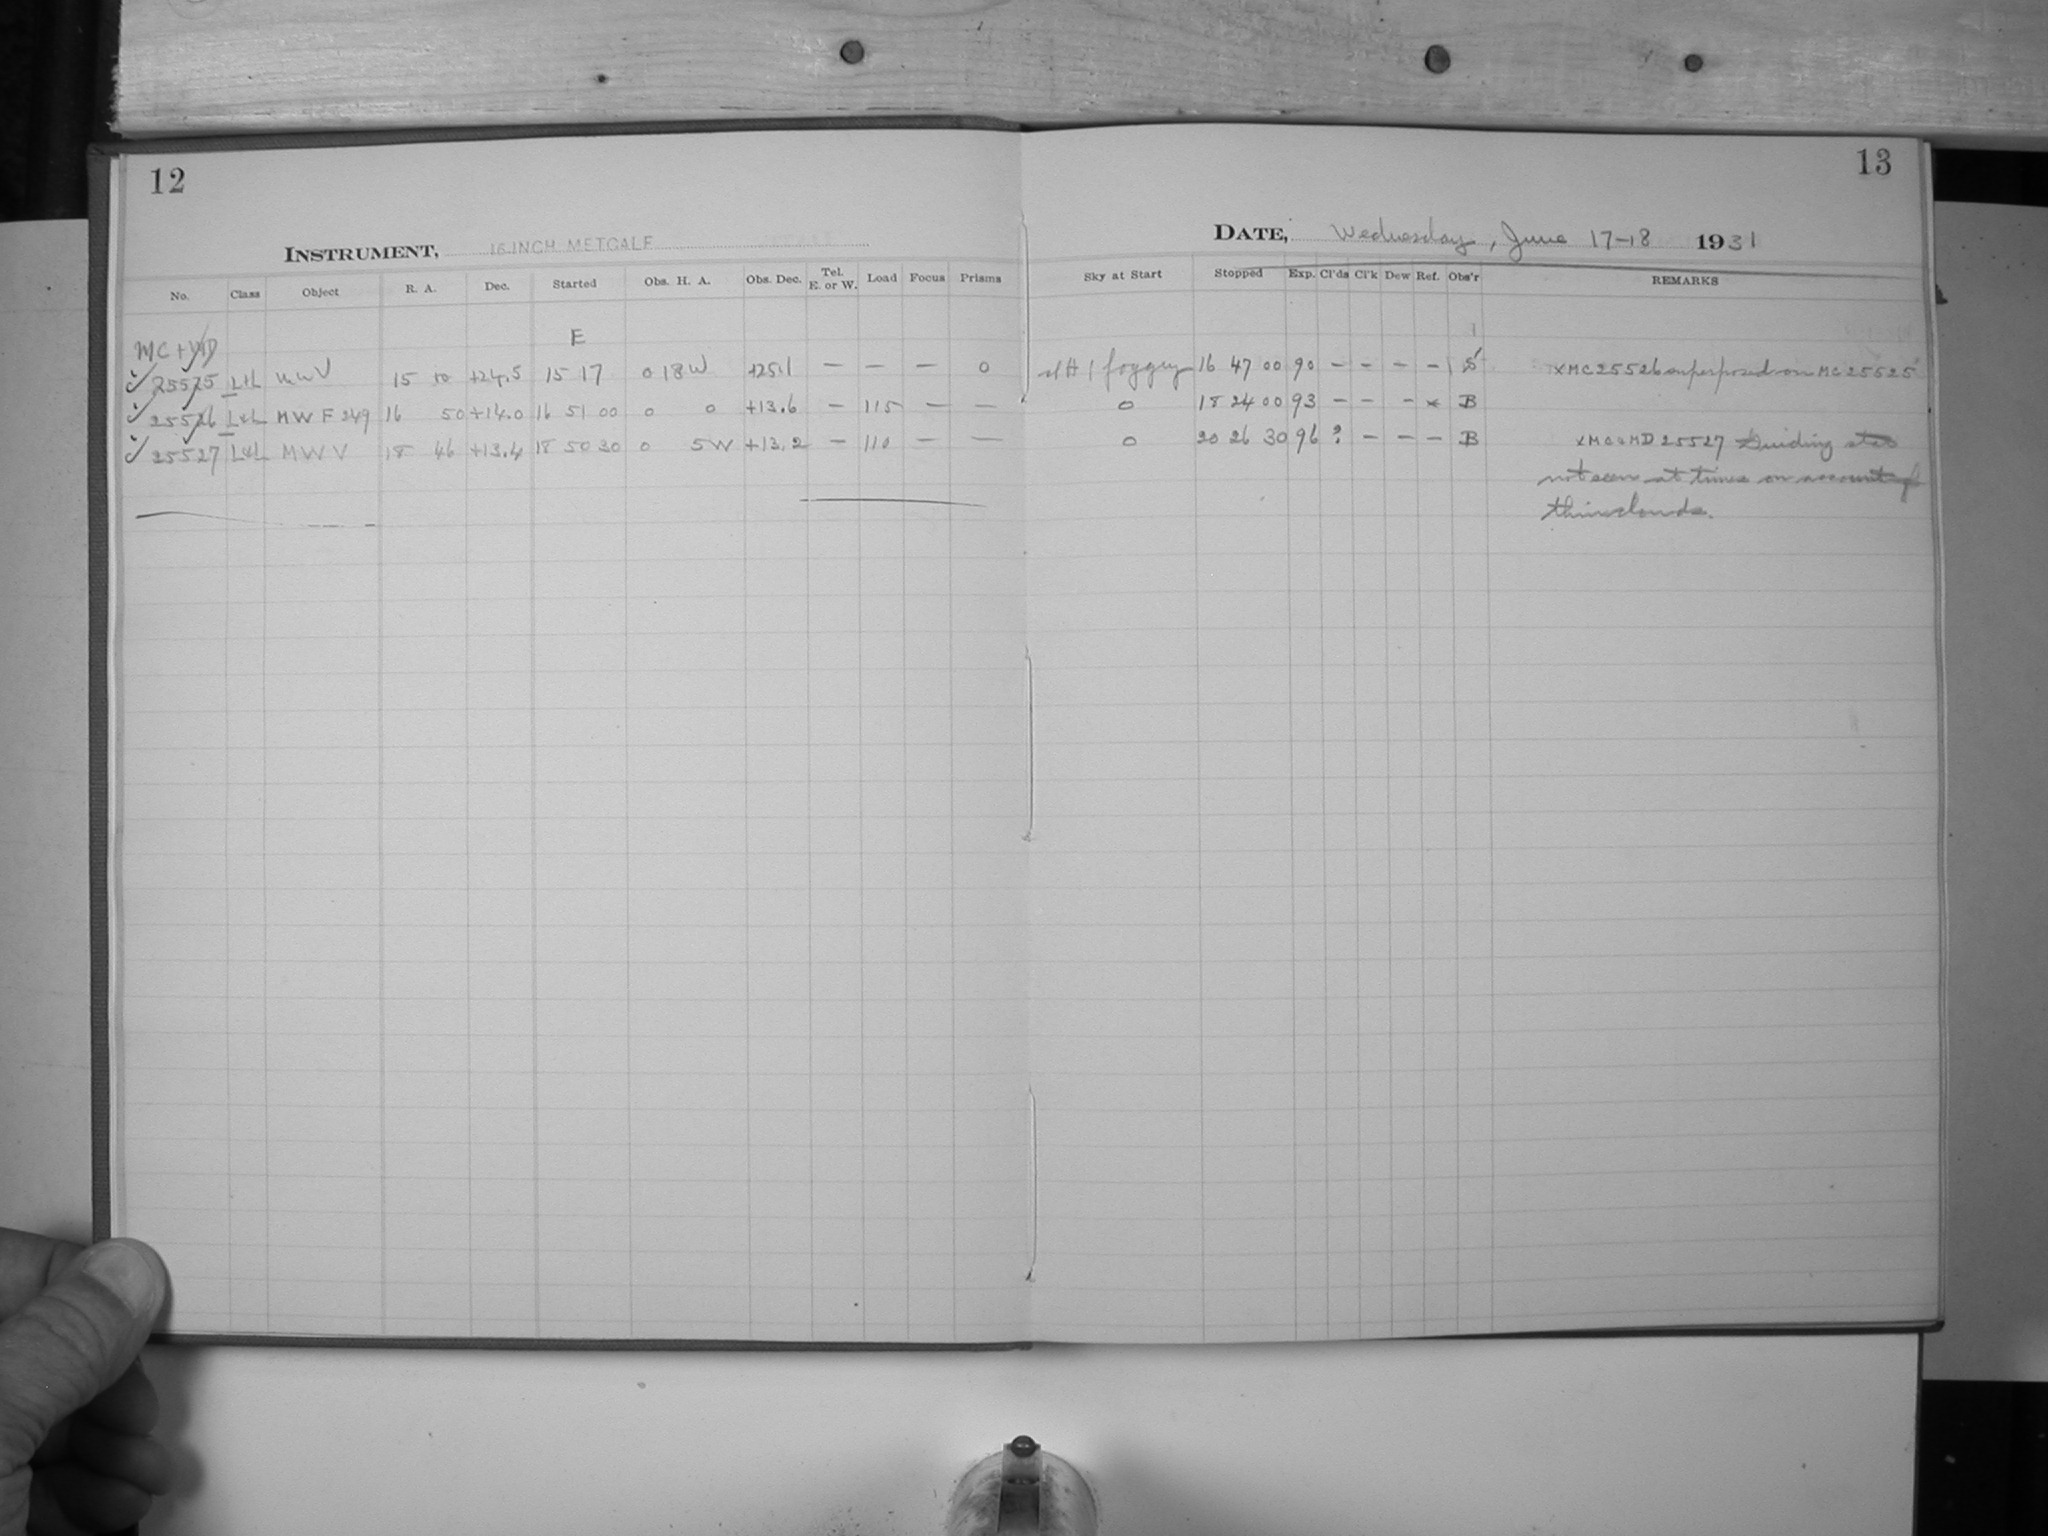 12
INSTRUMENT, 16 INCH METCALF
No. Class Object R. A. Dec. Started Obs. H. A. Obs. Dec. Tel. E. or W. Load Focus Prisms
E
MC + MD
25525 L+L MWV 15 10 +24.5 15 17 0 18 W +25.1 — — — 0
25526 L+L MWF 249 16 50 +14.0 16 51 00 0 0 +13.6 — 115 — —
25527 L+L MWV 18 46 +13.4 18 50 30 0 5 W +13.2 — 110 — —
13
DATE, Wednesday, June 17-18 1931
Sky at Start Stopped Exp. Cl'ds Cl'k Dew Ref. Obs'r REMARKS
foggy 16 47 00 90 — — — — S x MC 25526 superposed on MC 25525
0 18 24 00 93 — — — x B
0 20 26 30 96 ? — — — B x MC & MD 25527 Guiding star
not seen at times on account of
thin clouds.